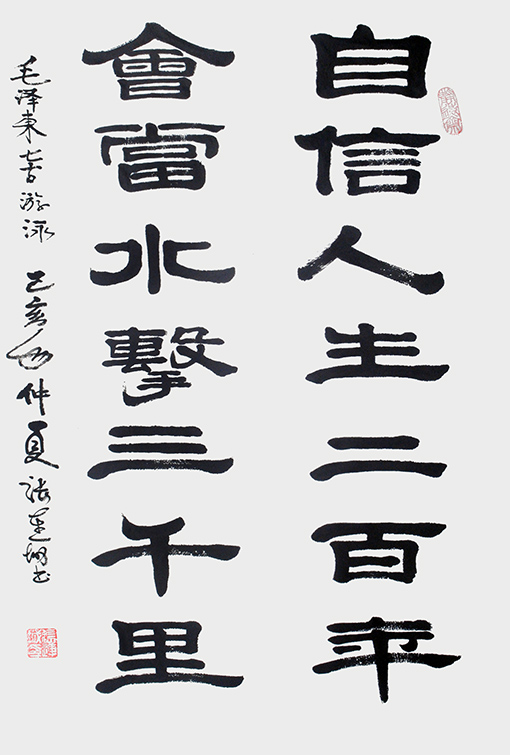 自信人生二百年
會當水擊三千里
毛泽東七古游泳 己亥年仲夏 张